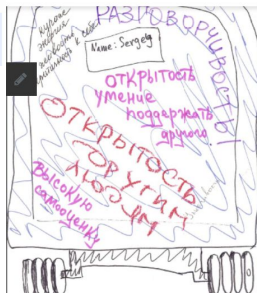 РАЗГОВОРЧИВОСТЬ!
Name: Sergey
ОТКРЫТОСТЬ
УМЕНИЕ
поддержать
другого
ОТКРЫТОСТЬ
ДРУГИМ
ЛЮДЯМ
ВЫСОКУЮ
самооценку